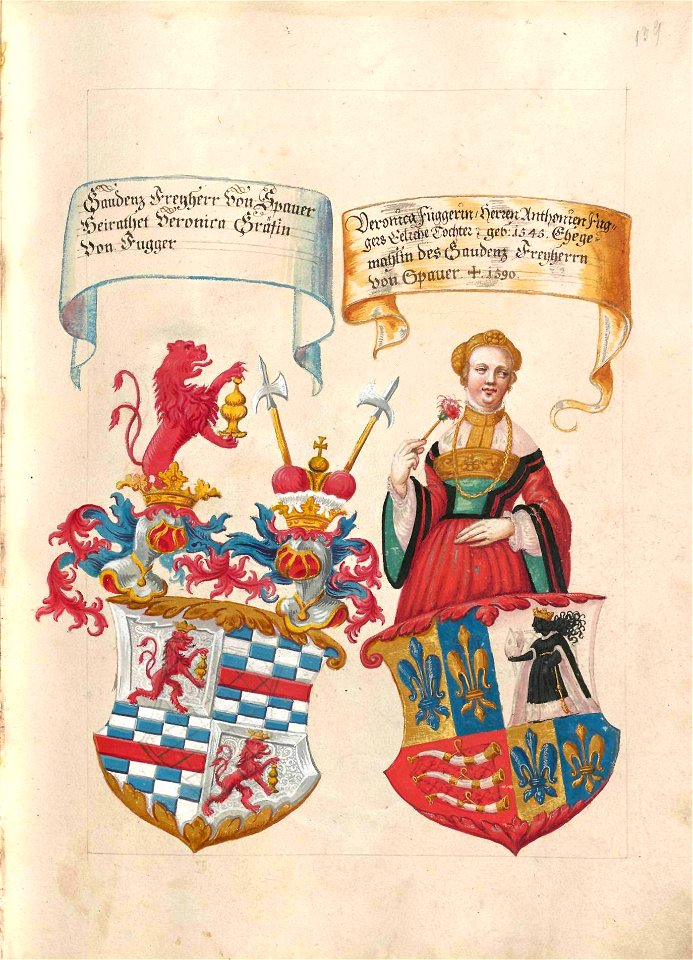 139
Gaudenz Freyherr Von Spauer
Heirathet Veronica Gräfin
Von Fugger
Veronica Fuggerin, Herren Anthonien Fug=
gers Eeliche Tochter; geb: 1545. Ehege=
mahlin des Gaudenz Freyherrn
von Spauer ✝. 1590.